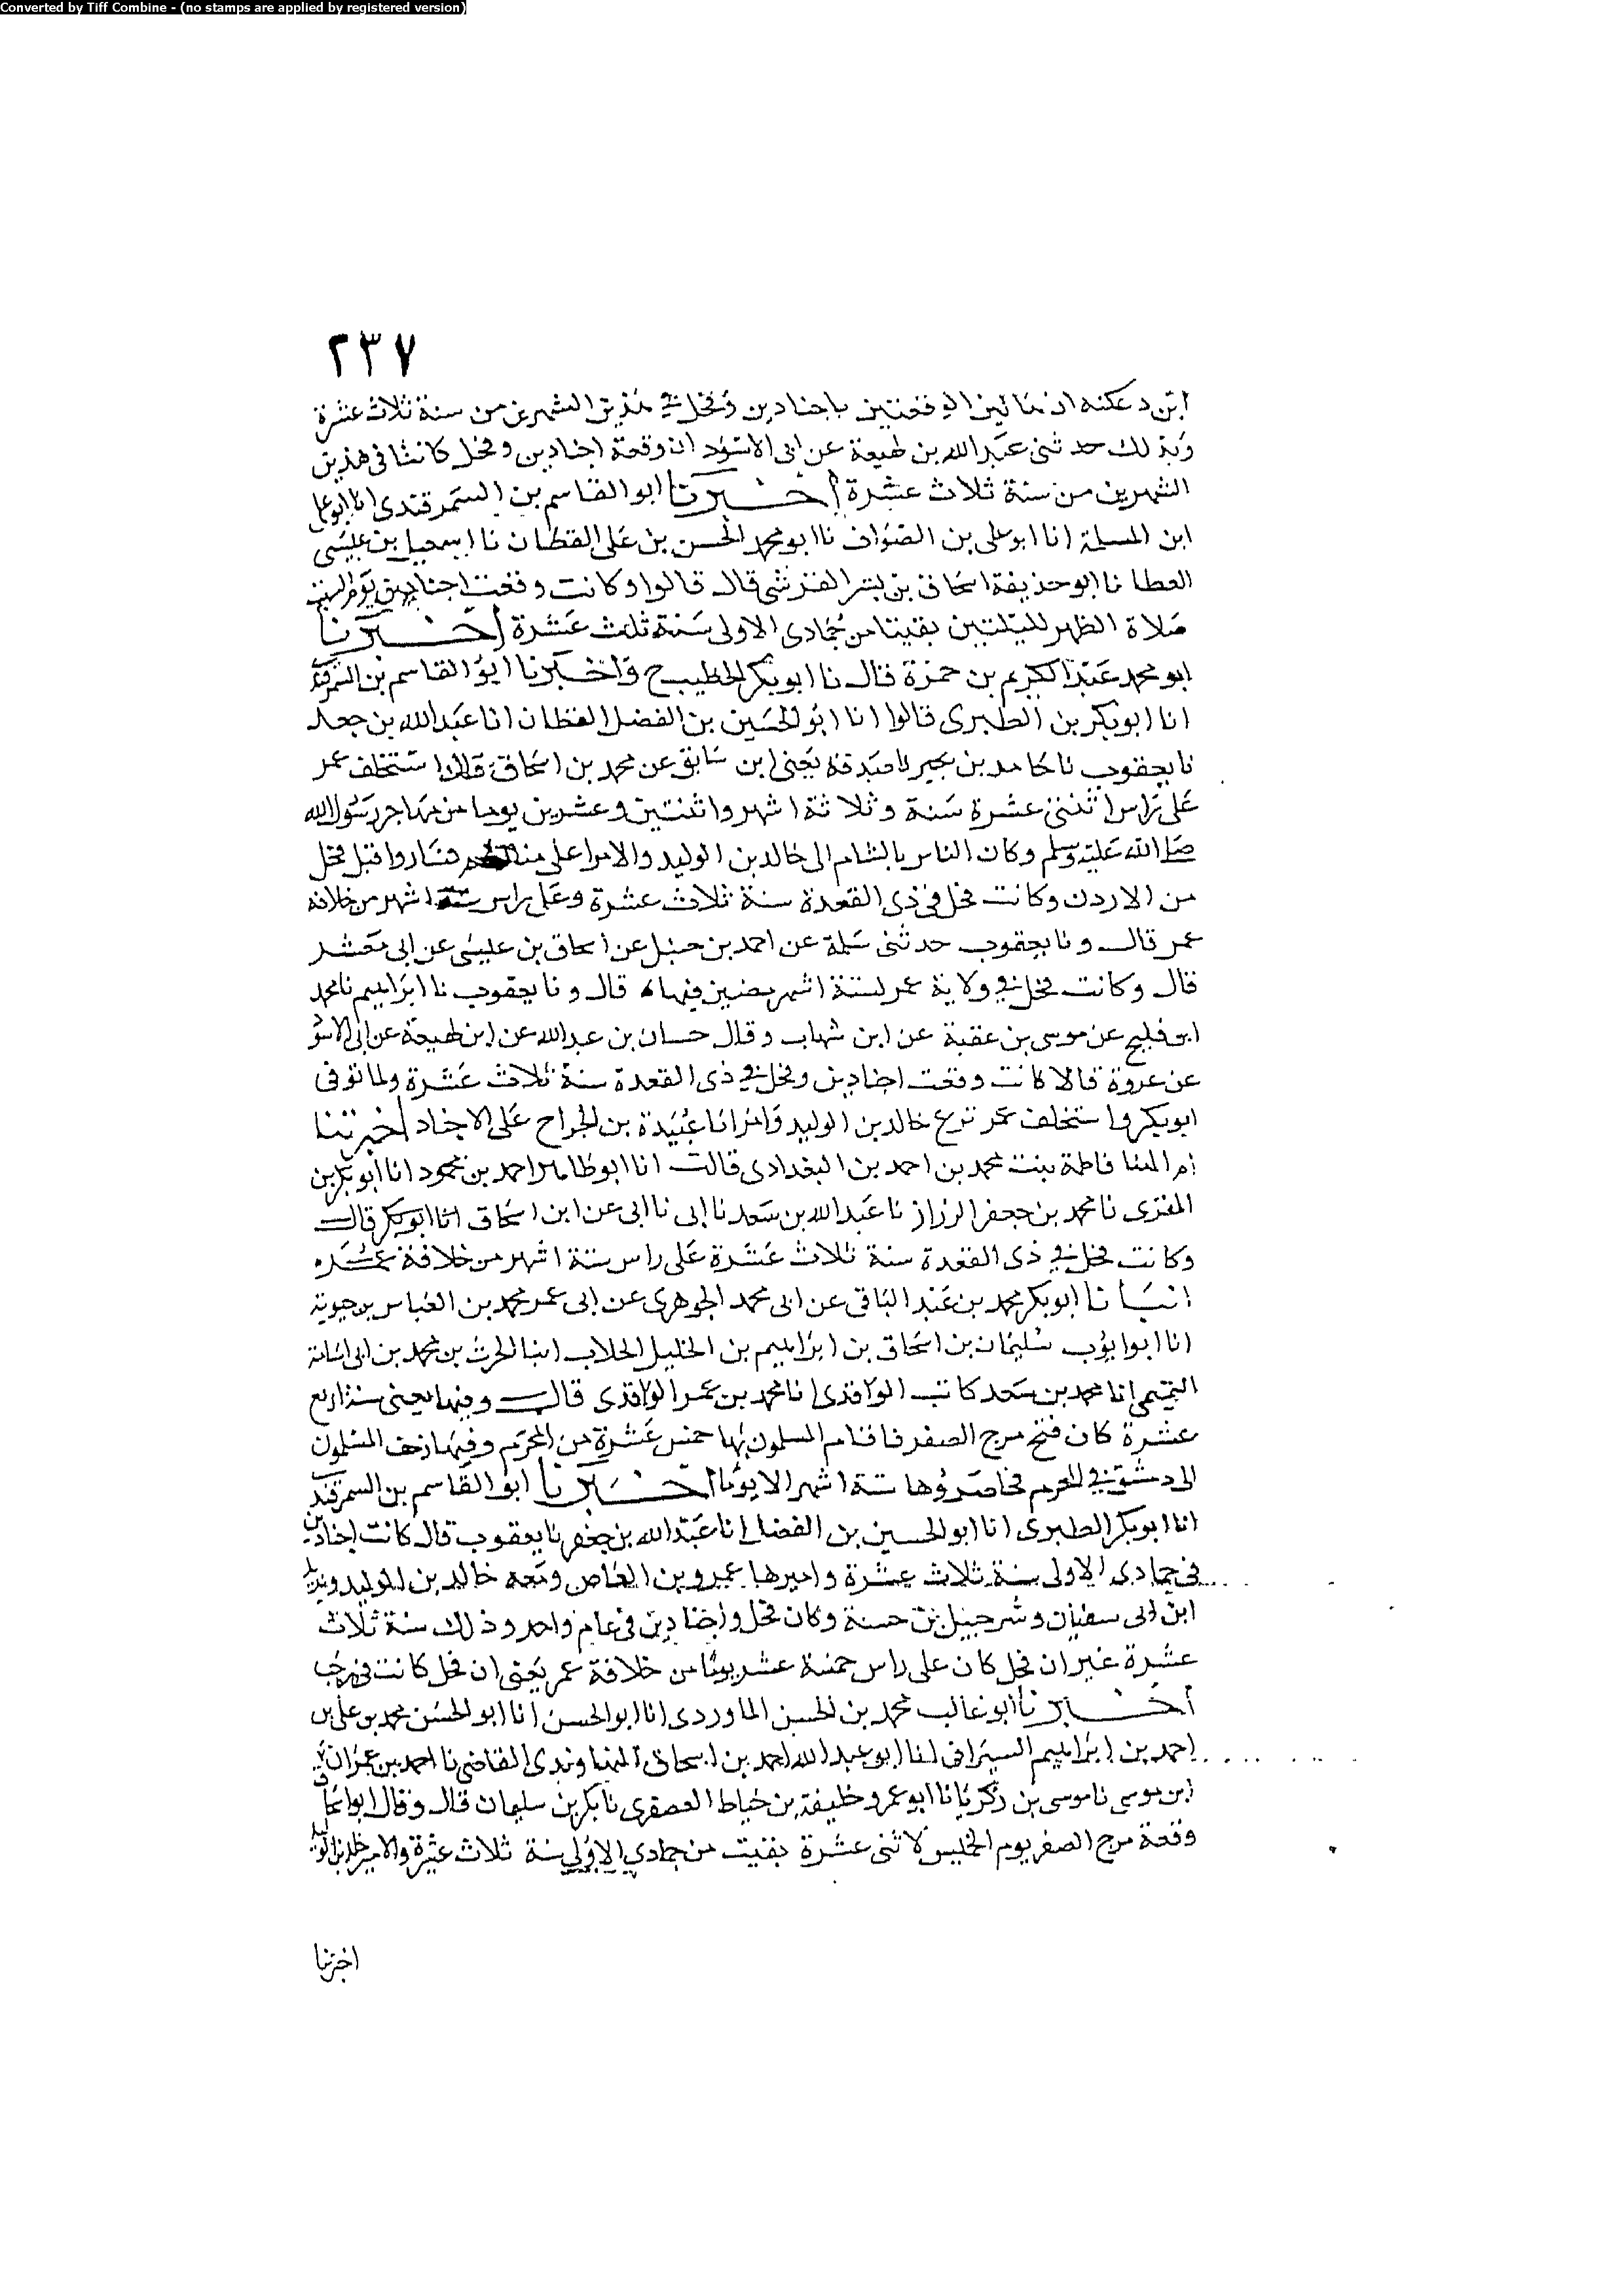 Converted by Tiff Combine - (no stamps are applied by registered version)
٢٣٧
ان هاتين الوقعتين باجنادين وفحل في هذين الشهرين من سنة ثلاث عشرة
وبذلك حدثني عبد الله بن لهيعة عن ابي الاسود ان وقعة اجنادين وفحل كانتا في هذين
الشهرين من سنة ثلاث عشرة اخبرنا ابو القاسم بن السمرقندي انا ابو علي
ابن المسلمة انا ابو علي بن الصواف نا ابو محمد الحسن بن علي القطان نا اسمعيل بن عيسى
العطا نا ابو حذيفة اسحاق بن بشر القرشي قال قالوا وكانت وقعت اجنادين يوم السبت
صلاة الظهر لليلتين بقيتا من جمادى الاولى سنة ثلث عشرة اخبرنا
ابو محمد عبد الكريم بن حمزة قال نا ابو بكر الخطيب ح واخبرنا ابو القاسم بن السمرقند
انا ابو بكر بن الطبري قالوا انا ابو الحسين بن الفضل القطان انا عبد الله بن جعفر
نا يعقوب نا حامد بن يحيى نا صدقة يعني ابن سابق عن محمد بن اسحاق قال استخلف عمر
على راس اثنتي عشرة سنة وثلاثة اشهر واثنتين وعشرين يوما من مهاجر رسول الله
صلى الله عليه وسلم وكان الناس بالشام الى خالد بن الوليد والامرا على فساروا قبل فحل
من الاردن وكانت فحل في ذي القعدة سنة ثلاث عشرة وعلى راس ستة اشهر من خلافة
عمر قال ونا يعقوب حدثني سلمة عن احمد بن حنبل عن اسحاق بن عيسى عن ابي معشر
قال وكانت فحل في ولاية عمر لستة اشهر مضين فيها قال ونا يعقوب نا ابراهيم نا محمد
ابو فليح عن موسى بن عقبة عن ابن شهاب وقال حسان بن عبد الله عن ابن لهيعة عن ابي الاسود
عن عروة قالا كانت وقعت اجنادين وفحل في ذي القعدة سنة ثلاث عشرة ولما توفي
ابو بكر واستخلف عمر نزع خالد بن الوليد وامر ابا عبيدة بن الجراح على الاجناد اخبرتنا
ام البها فاطمة بنت محمد بن احمد بن البغدادي قالت انا ابو طاهر احمد بن محمود انا ابو بكر بن
المقرى نا محمد بن جعفر الزراز نا عبد الله بن سعد نا ابي نا ابي عن ابن اسحاق ابو بكر قال
وكانت فحل في ذي القعدة سنة ثلاث عشرة على راس ستة اشهر من خلافة عمر
انبانا ابو بكر محمد بن عبد الباقي عن ابي محمد الجوهري عن ابي عمر محمد بن العباس بن حيوية
انا ابو ايوب سليمان بن اسحاق بن ابراهيم بن الخليل الجلاب انبا الحرث بن محمد بن ابي اسامة
التيمي انا محمد بن سعد كاتب الواقدي انا محمد بن عمر الواقدي قال وفيها يعني سنة اربع
عشرة كان فتح مرج الصفر فاقام المسلمون بها خمس عشرة من المحرم وفيها زحف المسلمون
الى دمشق في المحرم فحاصروها ستة اشهر الا يوما اخبرنا ابو القاسم بن السمرقند
انا ابو بكر الطبري انا ابو الحسين بن الفضل انا عبد الله بن جعفر نا يعقوب قال كانت اجنادين
في جمادى الاولى سنة ثلاث عشرة واميرها عمرو بن العاص ومعه خالد بن الوليد ويزيد
ابن ابي سفيان وشرحبيل بن حسنة وكان فحل واجنادين في عام واحد وذلك سنة ثلاث
عشرة غير ان فحل كان على راس خمسة عشر يوما من خلافة عمر يعني ان فحل كانت في رجب
اخبرنا ابو غالب محمد بن الحسن الماوردي انا ابو الحسن انا ابو الحسن محمد بن علي بن
احمد بن ابراهيم السيرافي انا ابو عبد الله احمد بن اسحاق النهاوندي القاضي نا احمد بن عمران
ابن موسى نا موسى بن زكريا نا ابو عمرو خليفة بن خياط العصفري نا بكر بن سليمان قال وقال ابو اسحاق
وقعة مرج الصفر يوم الخميس لاثنتي عشرة بقيت من جمادي الاولى سنة ثلاث عشرة والامير خالد بن الوليد
اخبرنا